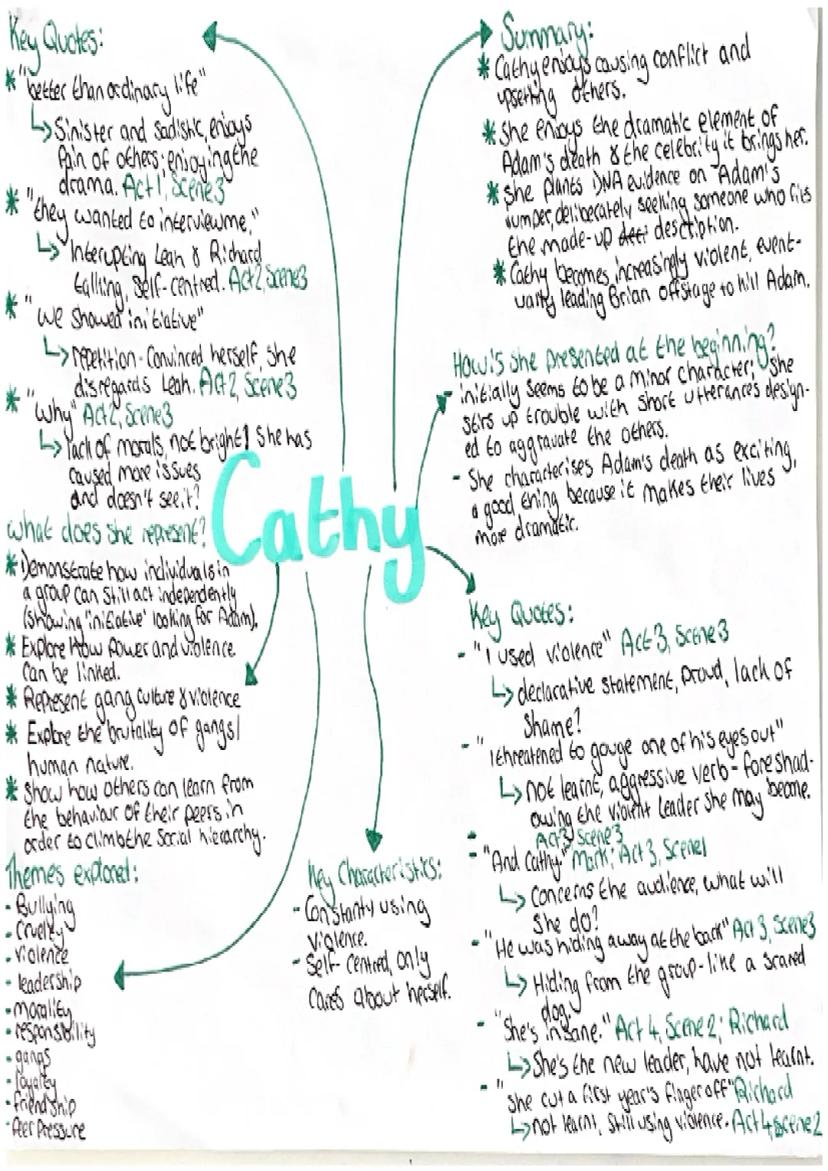 Key Quotes:
* "better than ordinary life"
↳ Sinister and sadistic, enjoys
pain of others; enjoying the
drama. Act 1, Scene 3
* "they wanted to interview me,"
↳ Interupting Leah & Richard
talling, self-centred. Act 2, Scene 3
* "we showed initiative"
↳ repetition - Convinced herself, she
disregards Leah. Act 2, Scene 3
* "why" Act 2, Scene 3
↳ lack of morals, not bright! She has
caused more issues
and doesn't see it?
what does she represent?
* Demonstrate how individuals in
a group can still act independently
(showing 'initiative' looking for Adam).
* Explore how power and violence
can be linked.
* Represent gang culture & violence
* Explore the brutality of gangs/
human nature.
* Show how others can learn from
the behaviour of their peers in
order to climb the social hierarchy.
Themes explored:
- Bullying
- Cruelty
- violence
- leadership
- morality
- responsibility
- gangs
- loyalty
- friendship
- Peer Pressure
Cathy
Key Characteristics:
- Constantly using
violence.
- Self-centred, only
cares about herself.
Summary:
* Cathy enjoys causing conflict and
upsetting others.
* She enjoys the dramatic element of
Adam's death & the celebrity it brings her.
* She plants DNA evidence on "Adam's
jumper, deliberately seeking someone who fits
the made-up description.
* Cathy becomes increasingly violent, event-
ually leading Brian offstage to kill Adam.
How is she presented at the beginning?
- initially seems to be a minor character; she
stirs up trouble with short utterances design-
ed to aggravate the others.
- She characterises Adam's death as exciting,
a good thing because it makes their lives
more dramatic.
Key Quotes:
- "I used violence" Act 3, Scene 3
↳ declarative statement, proud, lack of
shame?
- "I threatened to gouge one of his eyes out"
↳ not learnt, aggressive verb - foreshad-
owing the violent leader she may become.
Act 3, Scene 3
- "And Cathy." Mark; Act 3, Scene 1
↳ Concerns the audience, what will
she do?
- "He was hiding away at the back" Act 3, Scene 3
↳ Hiding from the group - like a scared
dog.
- "She's insane." Act 4, Scene 2; Richard
↳ She's the new leader, have not learnt.
- "she cut a first year's finger off" Richard
↳ not learnt, still using violence. Act 4, Scene 2